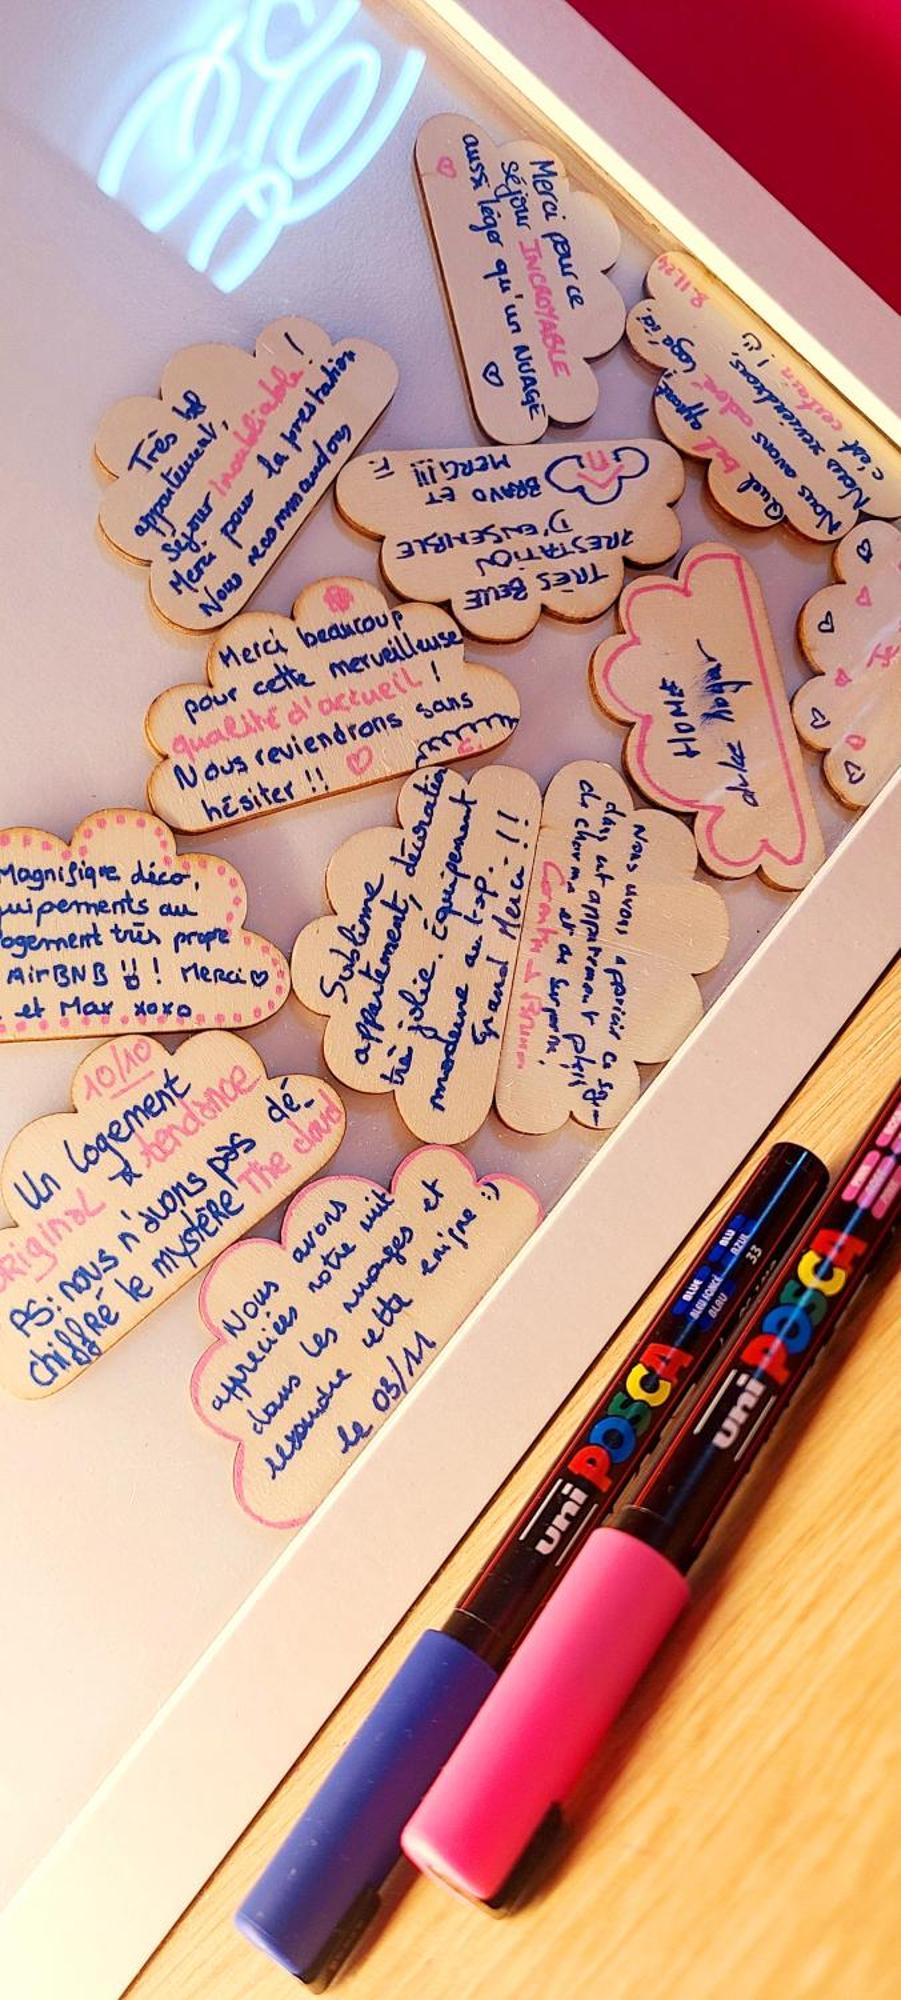 Merci pour ce
séjour INCROYABLE
aussi léger qu'un NUAGE
8.11.24
Quel bel appart!
Nous avons adoré logé ici.
Nous reviendrons,
c'est certain!
Très bel
appartement,
Séjour inoubliable!
Merci pour la prestation
Nous recommandons
TRÈS BELLE
PRESTATION
D'ENSEMBLE
BRAVO ET
MERCI!!!
Merci beaucoup
pour cette merveilleuse
qualité d'accueil!
Nous reviendrons sans
hésiter!!
Magnifique déco,
quipements au
ogement très propre
AirBNB !! ! Merci
et Max xoxo
Sublime
appartement, décoration
très jolie. Équipement
moderne au top.. !!
Grand Merci!!
Nous avons apprécier ce séj-
dans cet appartement plein
de charme et de surprise!
10/10
Un logement
original & tendance
PS: nous n'avons pas dé-
chiffré le mystère The cloud
Nous avons
appréciés notre nuit
dans les nuages et
résoudre cette enigme :)
le 03/11
BLUE
BLEU FONCÉ
BLAU
BLU
AZUL
33
uni POSCA
uni POSCA